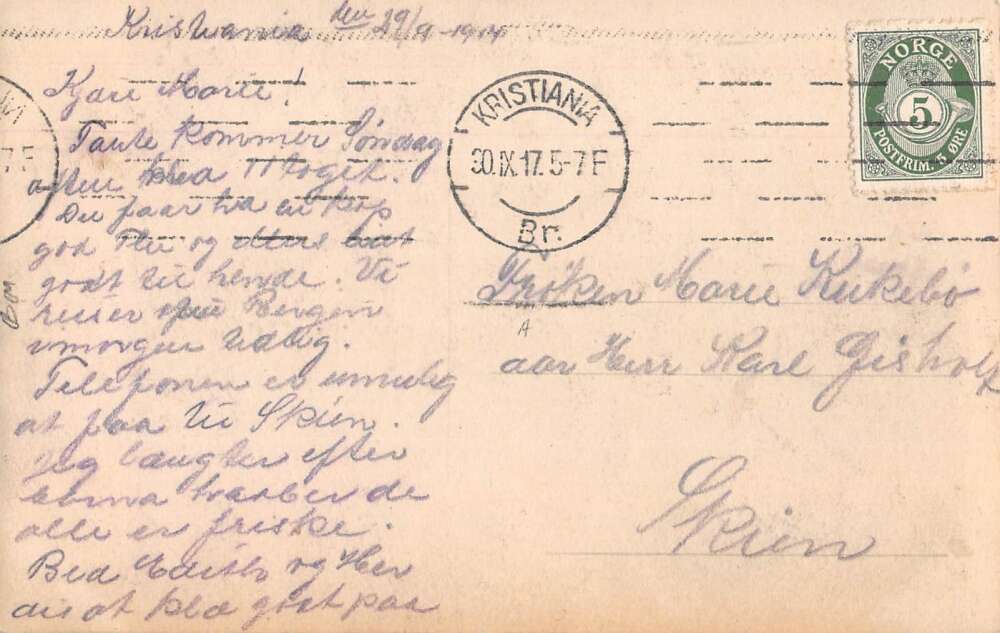 Kristiania den 29/9-1917
Kjære Marie!
Tante kommer Søndag
aften med 11 toget.
Du faar ha en kop
god Te og ellers
godt til hende. Vi
reiser Bergen
imorgen tidlig.
Telefonen er umulig
at faa til Skien.
Jeg længter efter
hvorber de
alle er friske.
Bed Edith og
at klæ godt paa
KRISTIANIA
30.IX.17.5-7 F
Br.
NORGE
5
POSTFRIM. 5 ØRE
Frøken Marie Kirkebø
Herr Karl
Skien
7 F
A